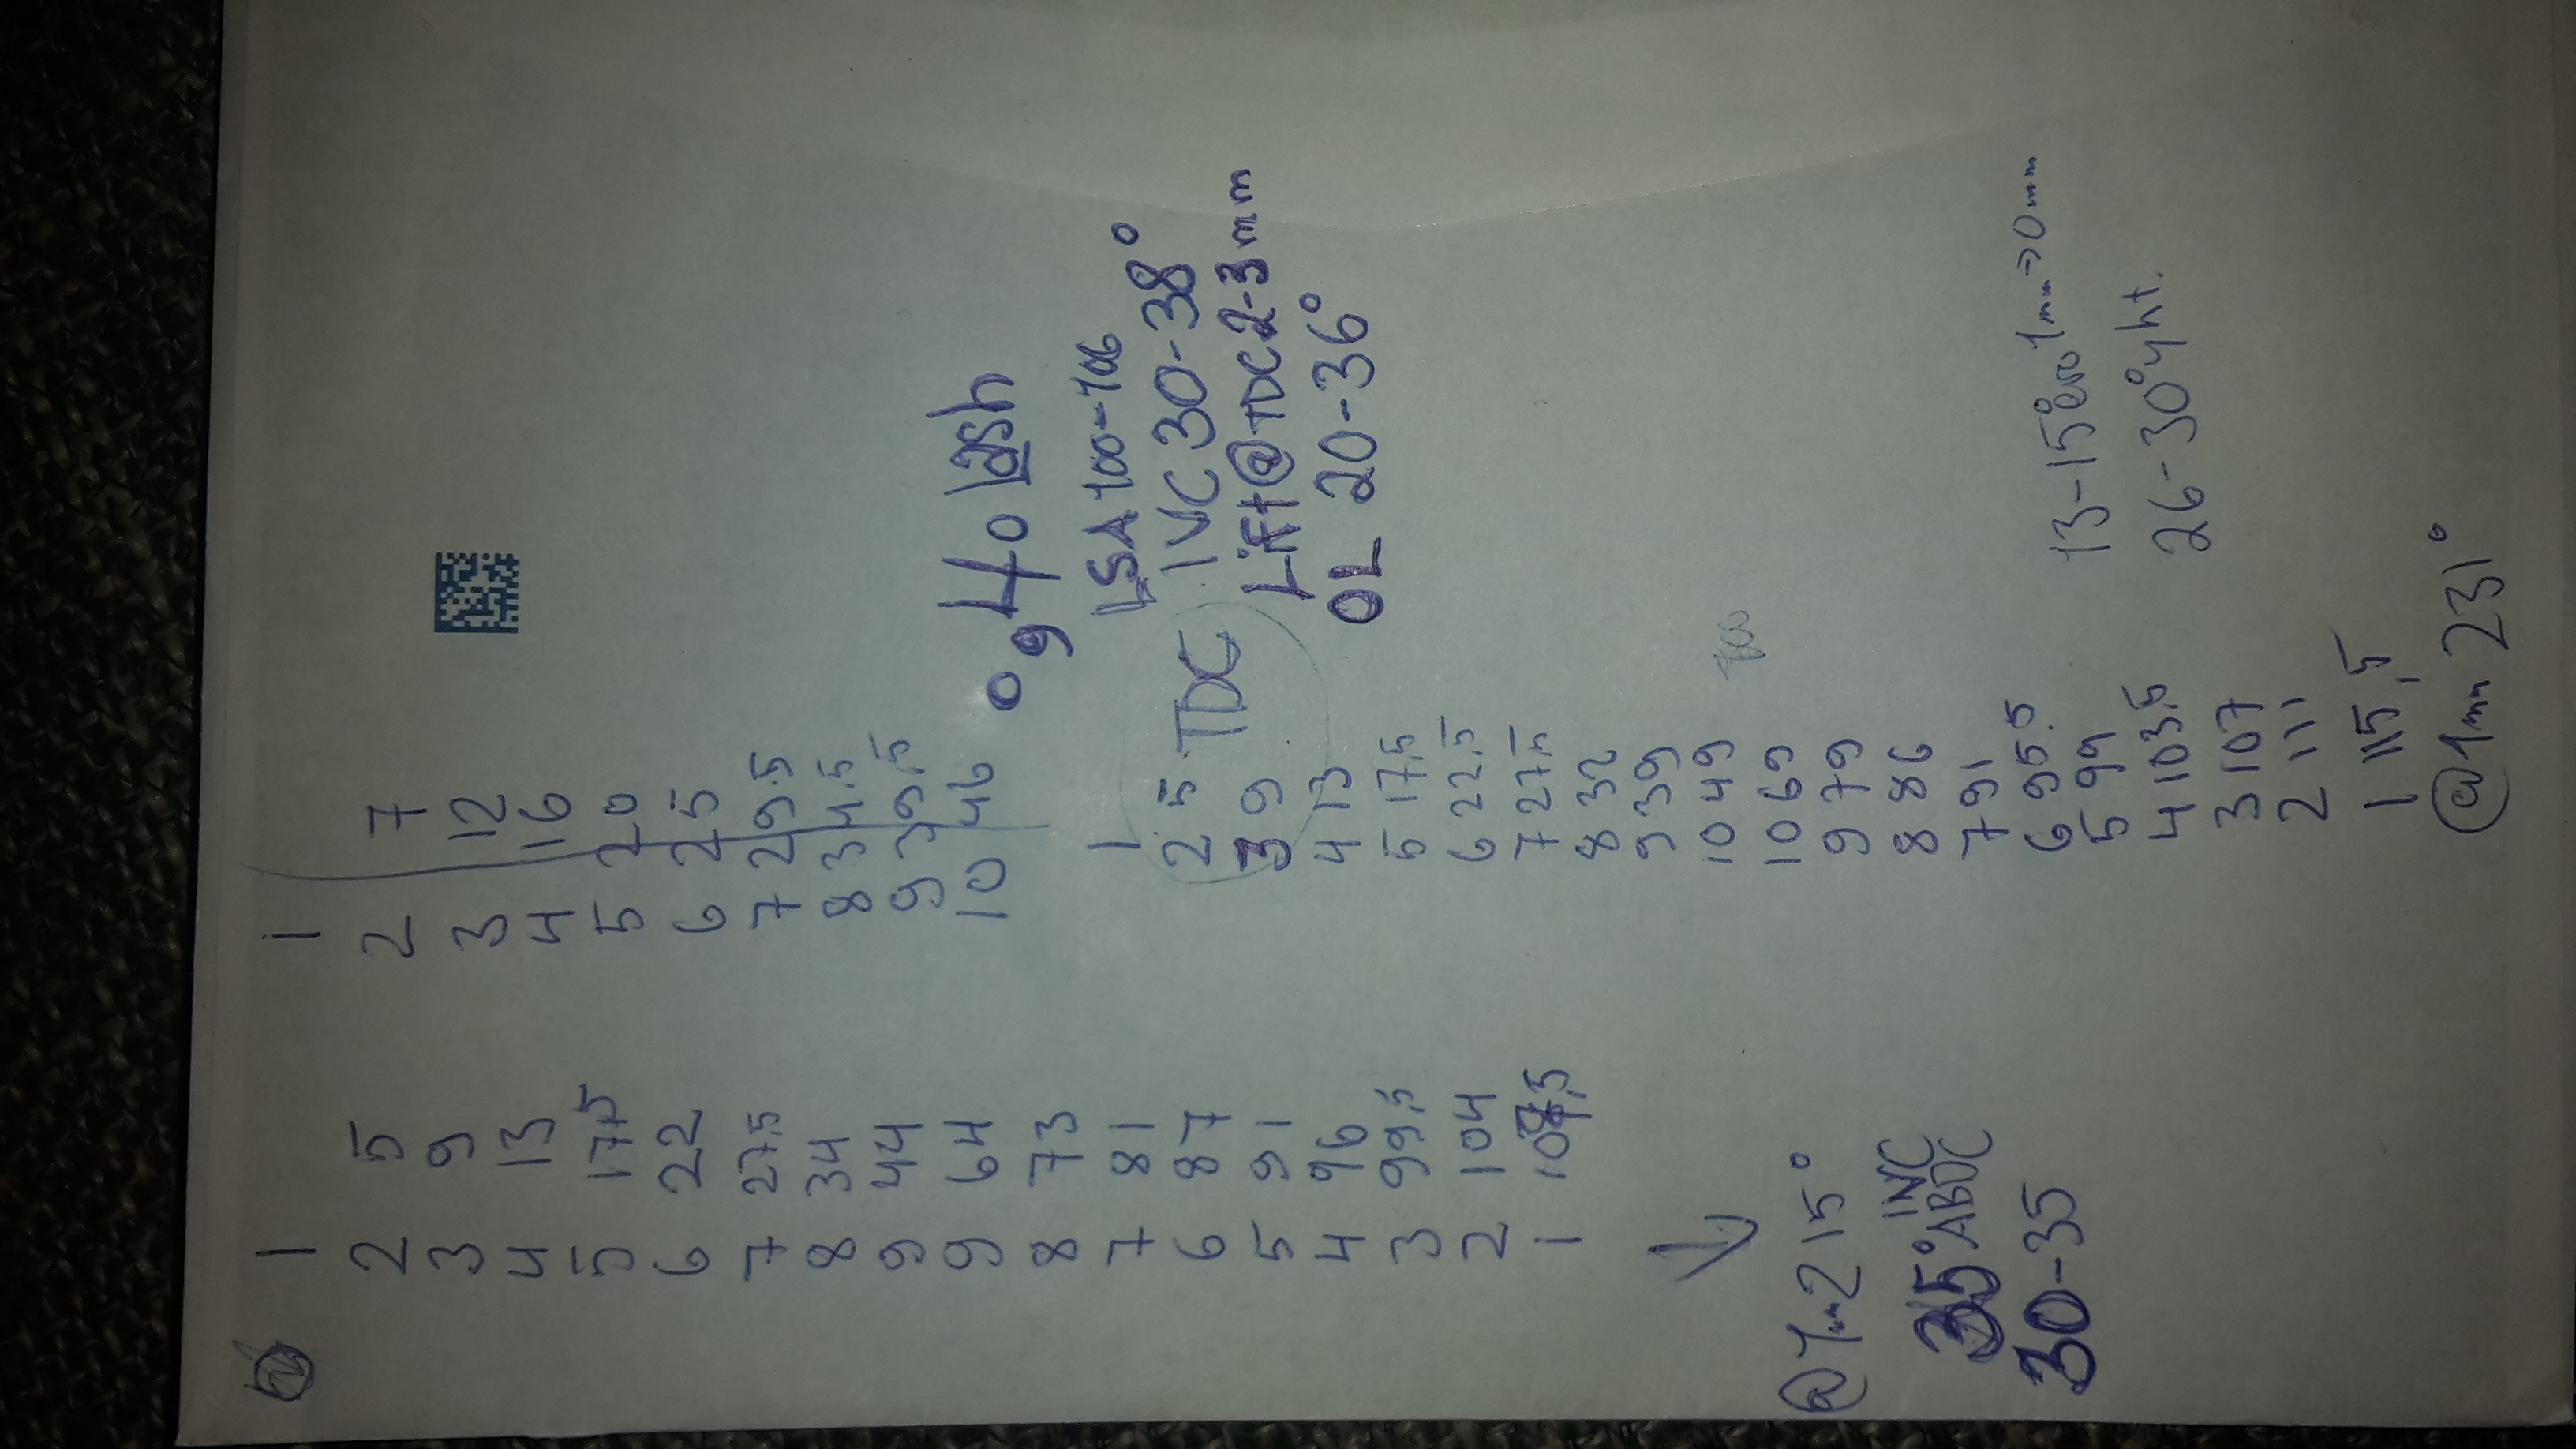 1
2 5
3 9
4 13
5 17.5
6 22
7 27.5
8 34
9 44
9 64
8 73
7 81
6 87
5 91
4 96
3 99.5
2 104
1
@1mm 215°
35° IVC
ABDC
30-35
1
2 7
3 12
4 16
5 20
6 25
7 29.5
8 34.5
9 39.5
10 46
1
2.5 TDC
3 9
4 13
5 17.5
6 22.5
7 27.5
8 32
9 39
10 49
10 69
9 79
8 86
7 91
6 95.5
5 99
4 103.5
3 107
2 111
1 115,5
@1mm 231°
0,40 lash
LSA 100-106
IVC 30-38°
Lift@TDC 2-3mm
OL 20-36°
13-15° 1mm->0mm
26-30° yht.